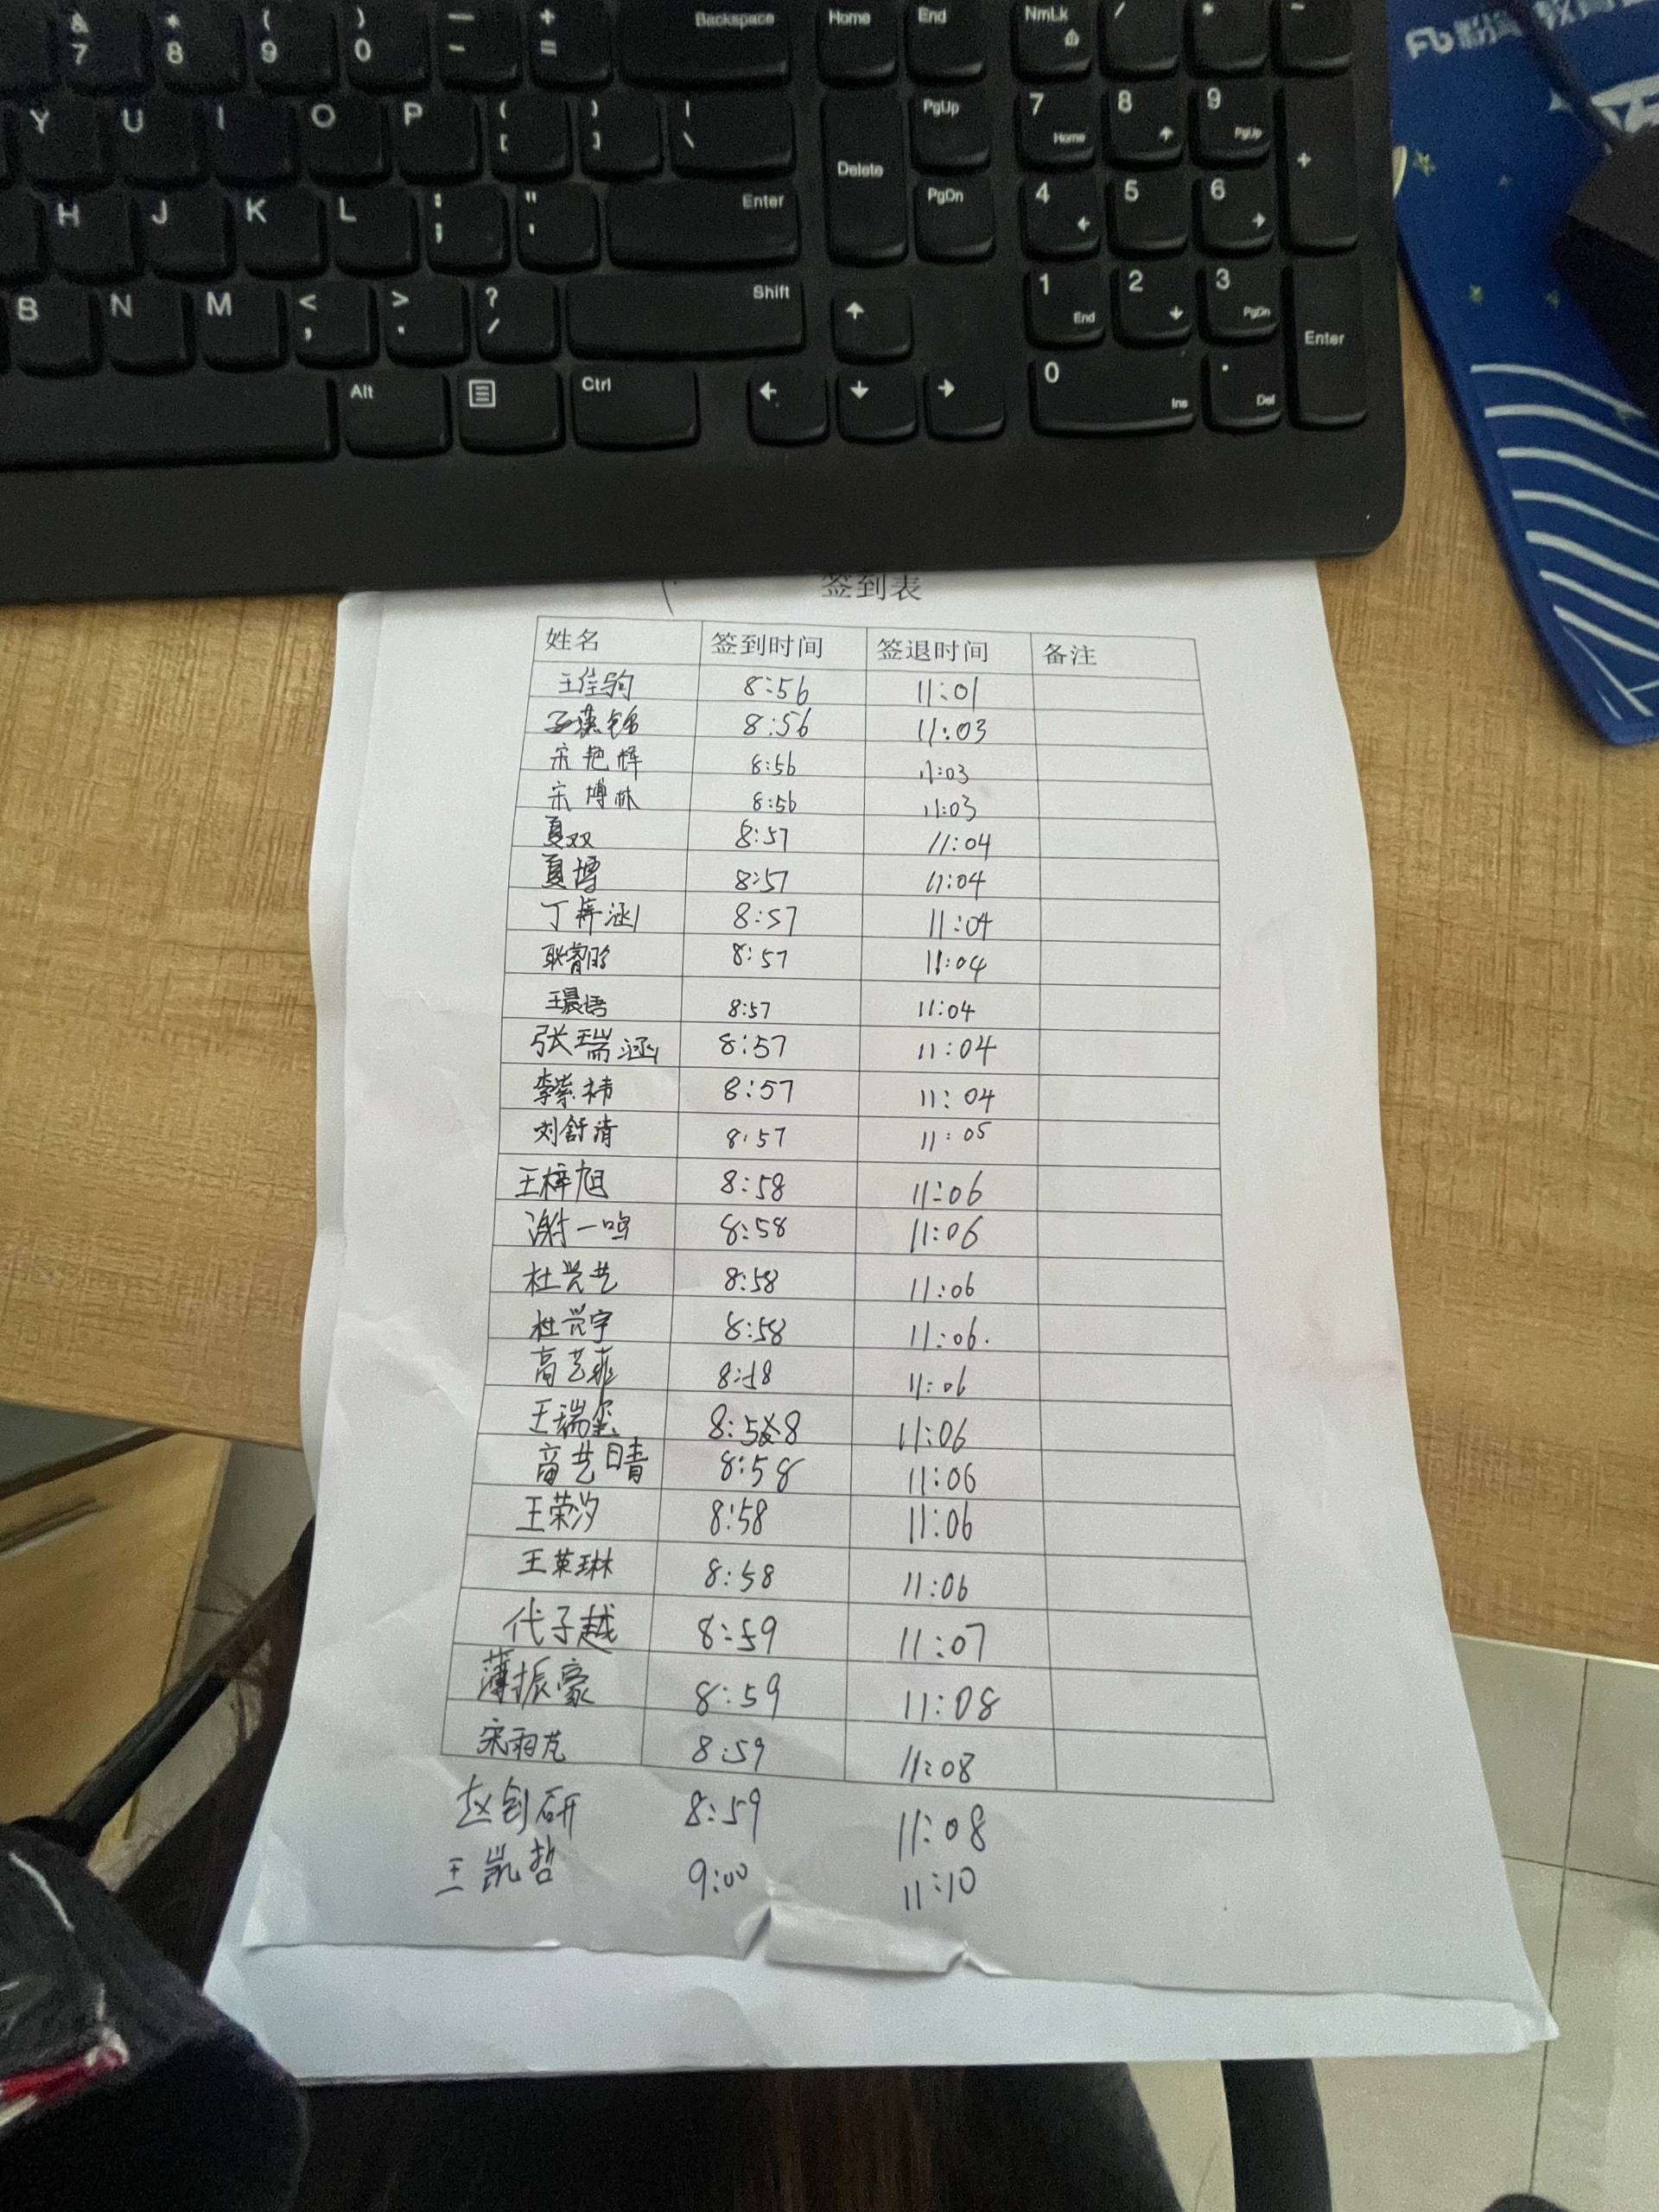 & * ( ) — + Backspace Home End NmLk / * -
7 8 9 0 - =
Y U I O P { } | PgUp 7 8 9 +
[ ] \ Delete Home PgUp
H J K L : " Enter PgDn 4 5 6
; '
B N M < > ? Shift 1 2 3 Enter
, . / End PgDn
Alt Ctrl 0 .
Ins Del
签到表
姓名 签到时间 签退时间 备注
王佳驹 8:56 11:01
8:56 11:03
宋艳辉 8:56 11:03
宋博林 8:56 11:03
夏双 8:57 11:04
夏博 8:57 11:04
丁梓涵 8:57 11:04
耿睿 8:57 11:04
王晨语 8:57 11:04
张瑞涵 8:57 11:04
李崇祎 8:57 11:04
刘舒清 8:57 11:05
王梓旭 8:58 11:06
谢一鸣 8:58 11:06
杜兴艺 8:58 11:06
杜兴宇 8:58 11:06.
高艺菲 8:58 11:06
王瑞玺 8:58 11:06
高艺晴 8:58 11:06
王荣汐 8:58 11:06
王英琳 8:58 11:06
代子越 8:59 11:07
薄振豪 8:59 11:08
宋羽芃 8:59 11:08
赵研 8:59 11:08
王凯哲 9:00 11:10